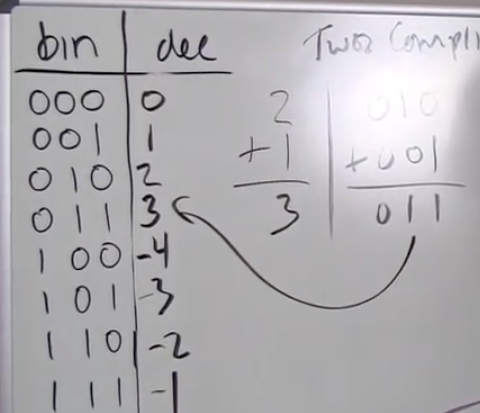 bin dec
000 0
001 1
010 2
011 3
100 -4
101 -3
110 -2
111 -1
Two's Compli
2
+1
3
010
+001
011